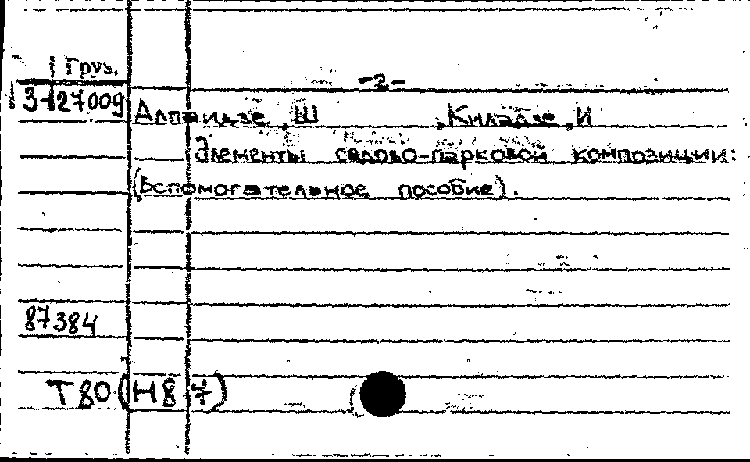 Груз.
-2-
3-127009
Алпаидзе, Ш , Киладзе, И
Элементы садово-парковой композиции:
(Вспомогательное пособие).
87384
Т80(Н8